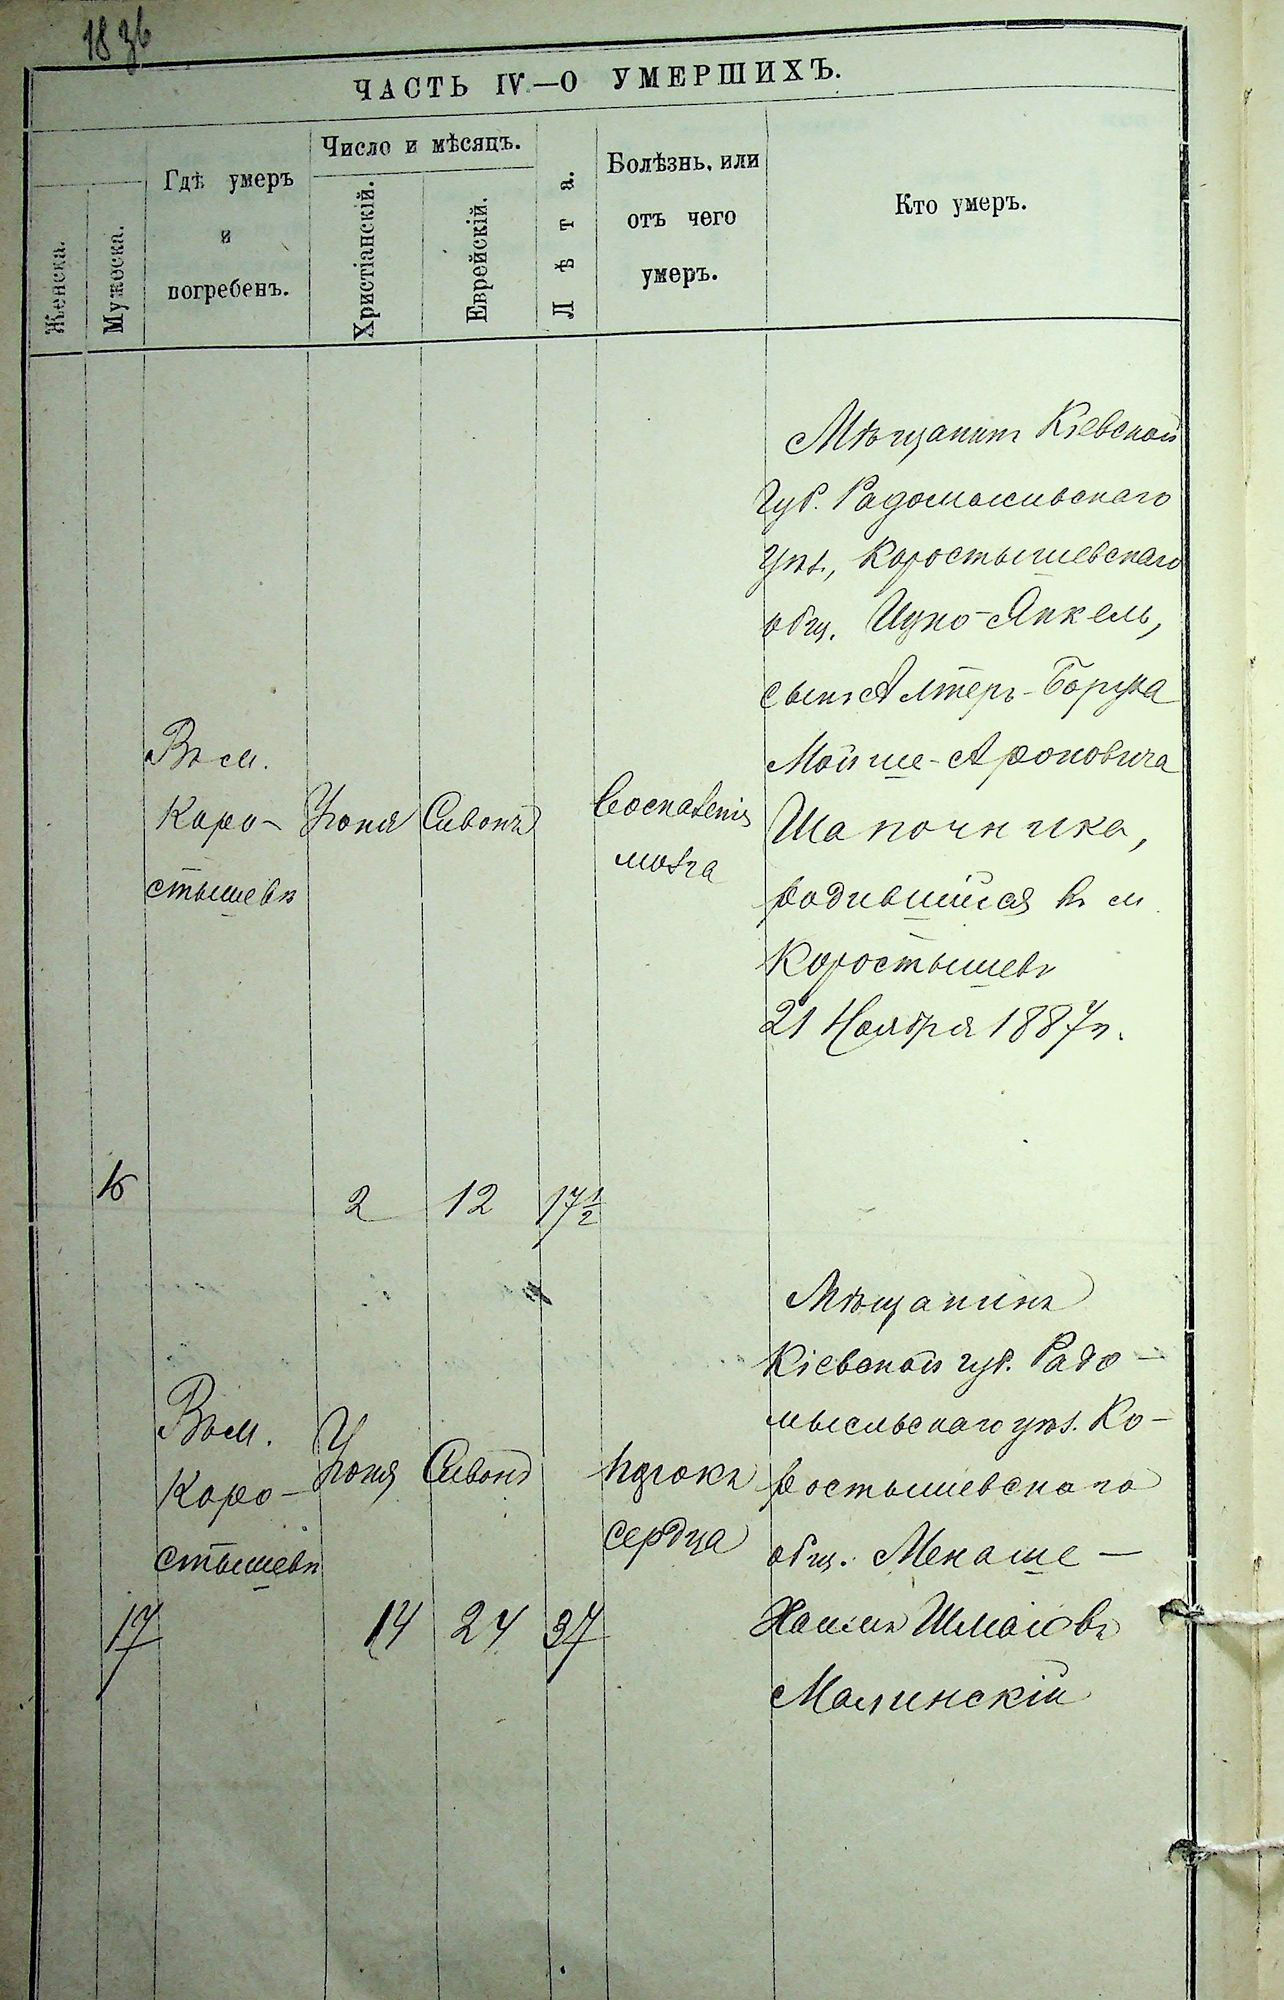 1836
ЧАСТЬ IV.—О УМЕРШИХЪ.
Женска.
Мужеска.
Гдѣ умеръ
и
погребенъ.
Число и мѣсяцъ.
Христіанскій.
Еврейскій.
Лѣта.
Болѣзнь, или
отъ чего
умеръ.
Кто умеръ.
16
Въ м.
Коро-
стышевѣ
Іюня
2
Сивонъ
12
17 1/2
Воспаленія
мозга
Мѣщанинъ Кіевской
губ. Радомысльскаго
уѣз., Коростышевскаго
общ. Ицко-Янкель,
сынъ Алтеръ-Боруха
Мойше-Ароновича
Шапочника,
родившійся въ м
Коростышевѣ
21 Ноября 1887 г.
17
Въ м.
Коро-
стышевѣ
Іюня
14
Сивонъ
24
37
Порокъ
сердца
Мѣщанинъ
Кіевской губ. Радо-
мысльскаго уѣз. Ко-
ростышевскаго
общ. Менаше-
Хаимъ
Малинскій